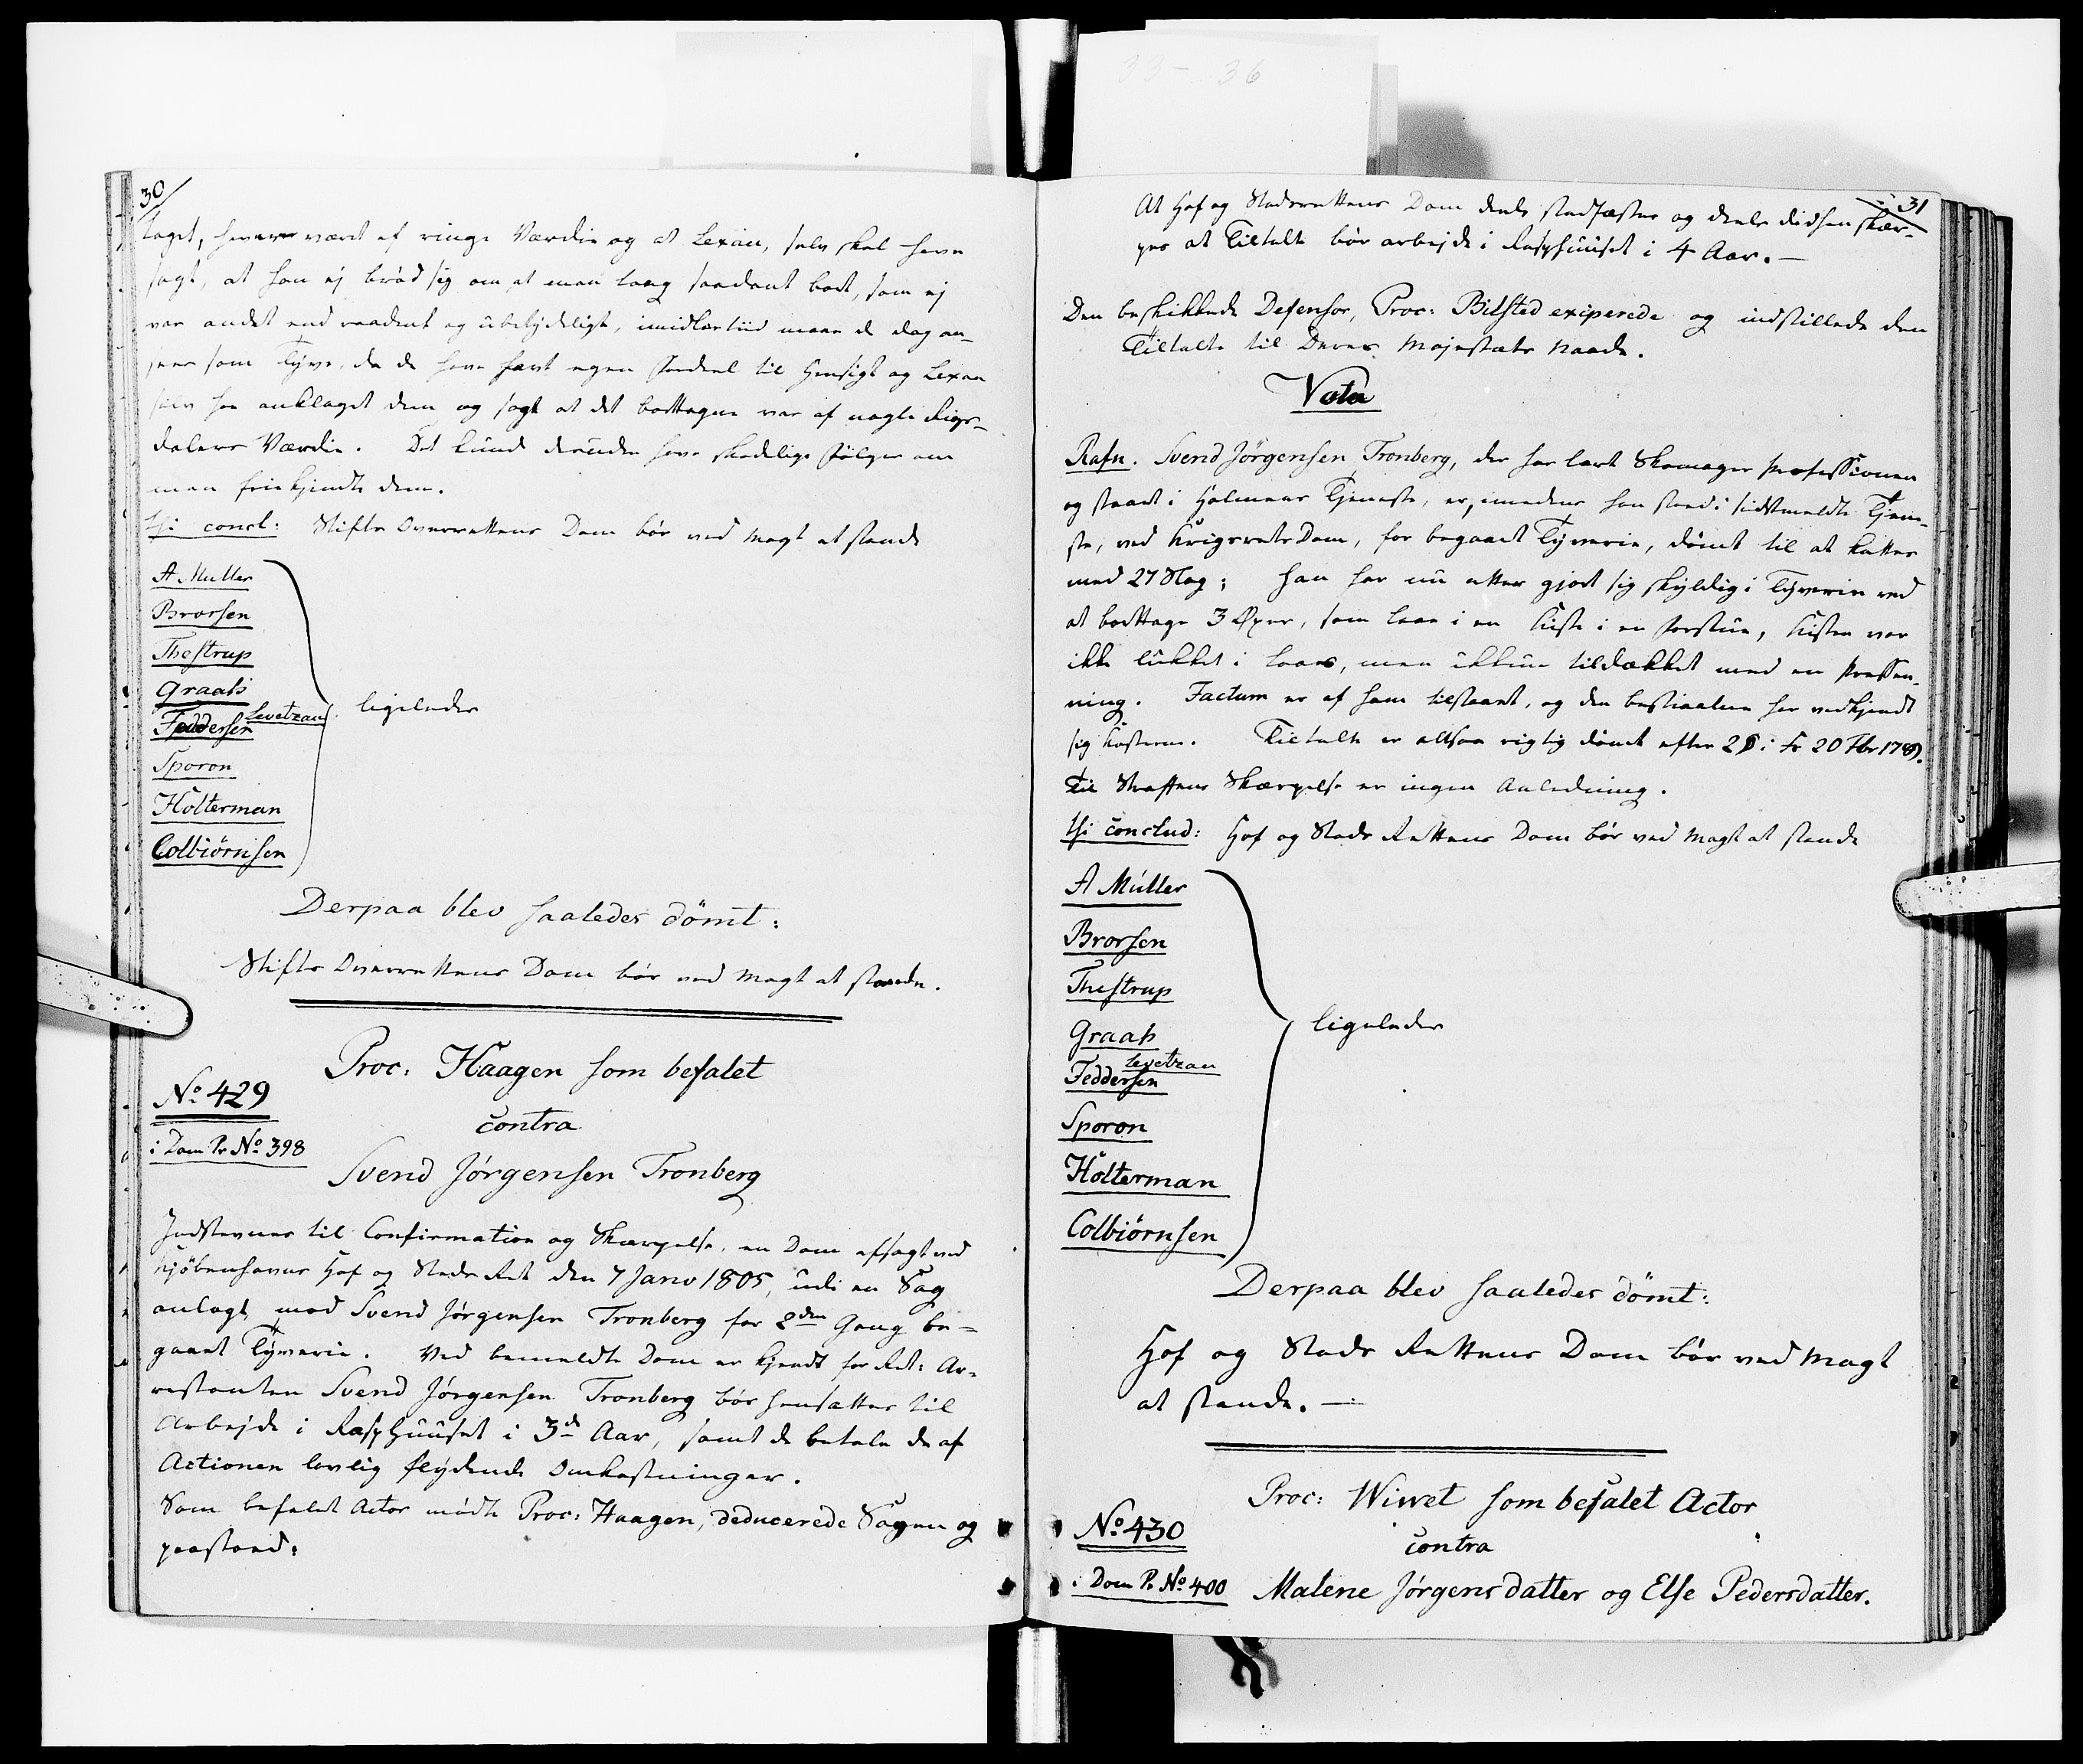 30
taget, have været af ringe Værdie og at Lexan, selv skal have
sagt, at han ej brød sig om at man tog saadant bort, som ej
var andet end raadent og ubetydeligt, imidlertiid maae de dog an-
sees som Tyve, da de have havt egen Fordeel til Hensigt og Lexan
selv har anklaget dem og sagt at det borttagne var af nogle Rigs-
dalers Værdie. Det kunde desuden have skadelige Følger om
man friekjendte dem.
Thi concl: Stifts Overrettens Dom bør ved Magt at stande
A Muller
Brorsen
Thestrup
Graah
Levetzau
Feddersen
Sporon
Holterman
Colbiørnsen
ligeledes
Derpaa blev saaledes dömt:
Stifts Overrettens Dom bør ved Magt at stande.
Proc: Haagen som befalet
No 429
contra
i Dom Pr No 398
Svend Jörgensen Tronberg
Indstevnes til Confirmation og Skærpelse, en Dom afsagt ved
Kjöbenhavns Hof og Stads Ret den 7 Janv 1805, udi en Sag
anlagt mod Svend Jörgensen Tronberg for 2den Gang be-
gaaet Tyverie. Ved bemeldte Dom er kjendt for Ret: Ar-
restanten Svend Jörgensen Tronberg bör hensættes til
Arbejde i Rasphuuset i 3de Aar, samt de betale de af
Actionen lovlig flydende Omkostninger.
Som befalet Actor mödte Proc: Haagen, deducerede Sagen og
paastoed:
31
At Hof og Stadsrettens Dom deels stadfæstes og deels didhen skær-
pes at Tiltalte bör arbejde i Rasphuuset i 4 Aar.—
Den beskikkede Defensor, Proc: Bilsted exiperede og indstillede den
Tiltalte til Deres Majestæts Naade.
Vota
Rafn. Svend Jörgensen Tronberg, der har lært Skomager Professionen
og staaet i Holmens Tjeneste, er, imedens han stoed i sidstmeldte Tjene-
ste, ved KrigsretsDom, for begaaet Tyverie, dömt til at kattes
med 27 Slag; han har nu atter gjort sig skyldig i Tyverie ved
at borttage 3 Øxer, som laae i en Kiste i en Forstue, Kisten var
ikke lukket i Laas, men ikkun tildækket med en Presen-
ning. Factum er af ham tilstaaet, og den bestiaalne har vedkjendt
sig Kosterne. Tiltalte er altsaa rigtig dömt efter 2 § i Fr 20 Fbr 1789.
Til Straffens Skærpelse er ingen Anledning.
Thi conclud: Hof og Stads Rettens Dom bör ved Magt at stande
A Müller
Brorsen
Thestrup
Graah
Levetzau
Feddersen
Sporon
Holterman
Colbiörnsen
ligeledes
Derpaa blev saaledes dömt:
Hof og Stads Rettens Dom bör ved Magt
at stande.—
Proc: Wivet som befalet Actor
No 430
contra
i Dom Pr No 400
Malene Jörgensdatter og Else Pedersdatter.